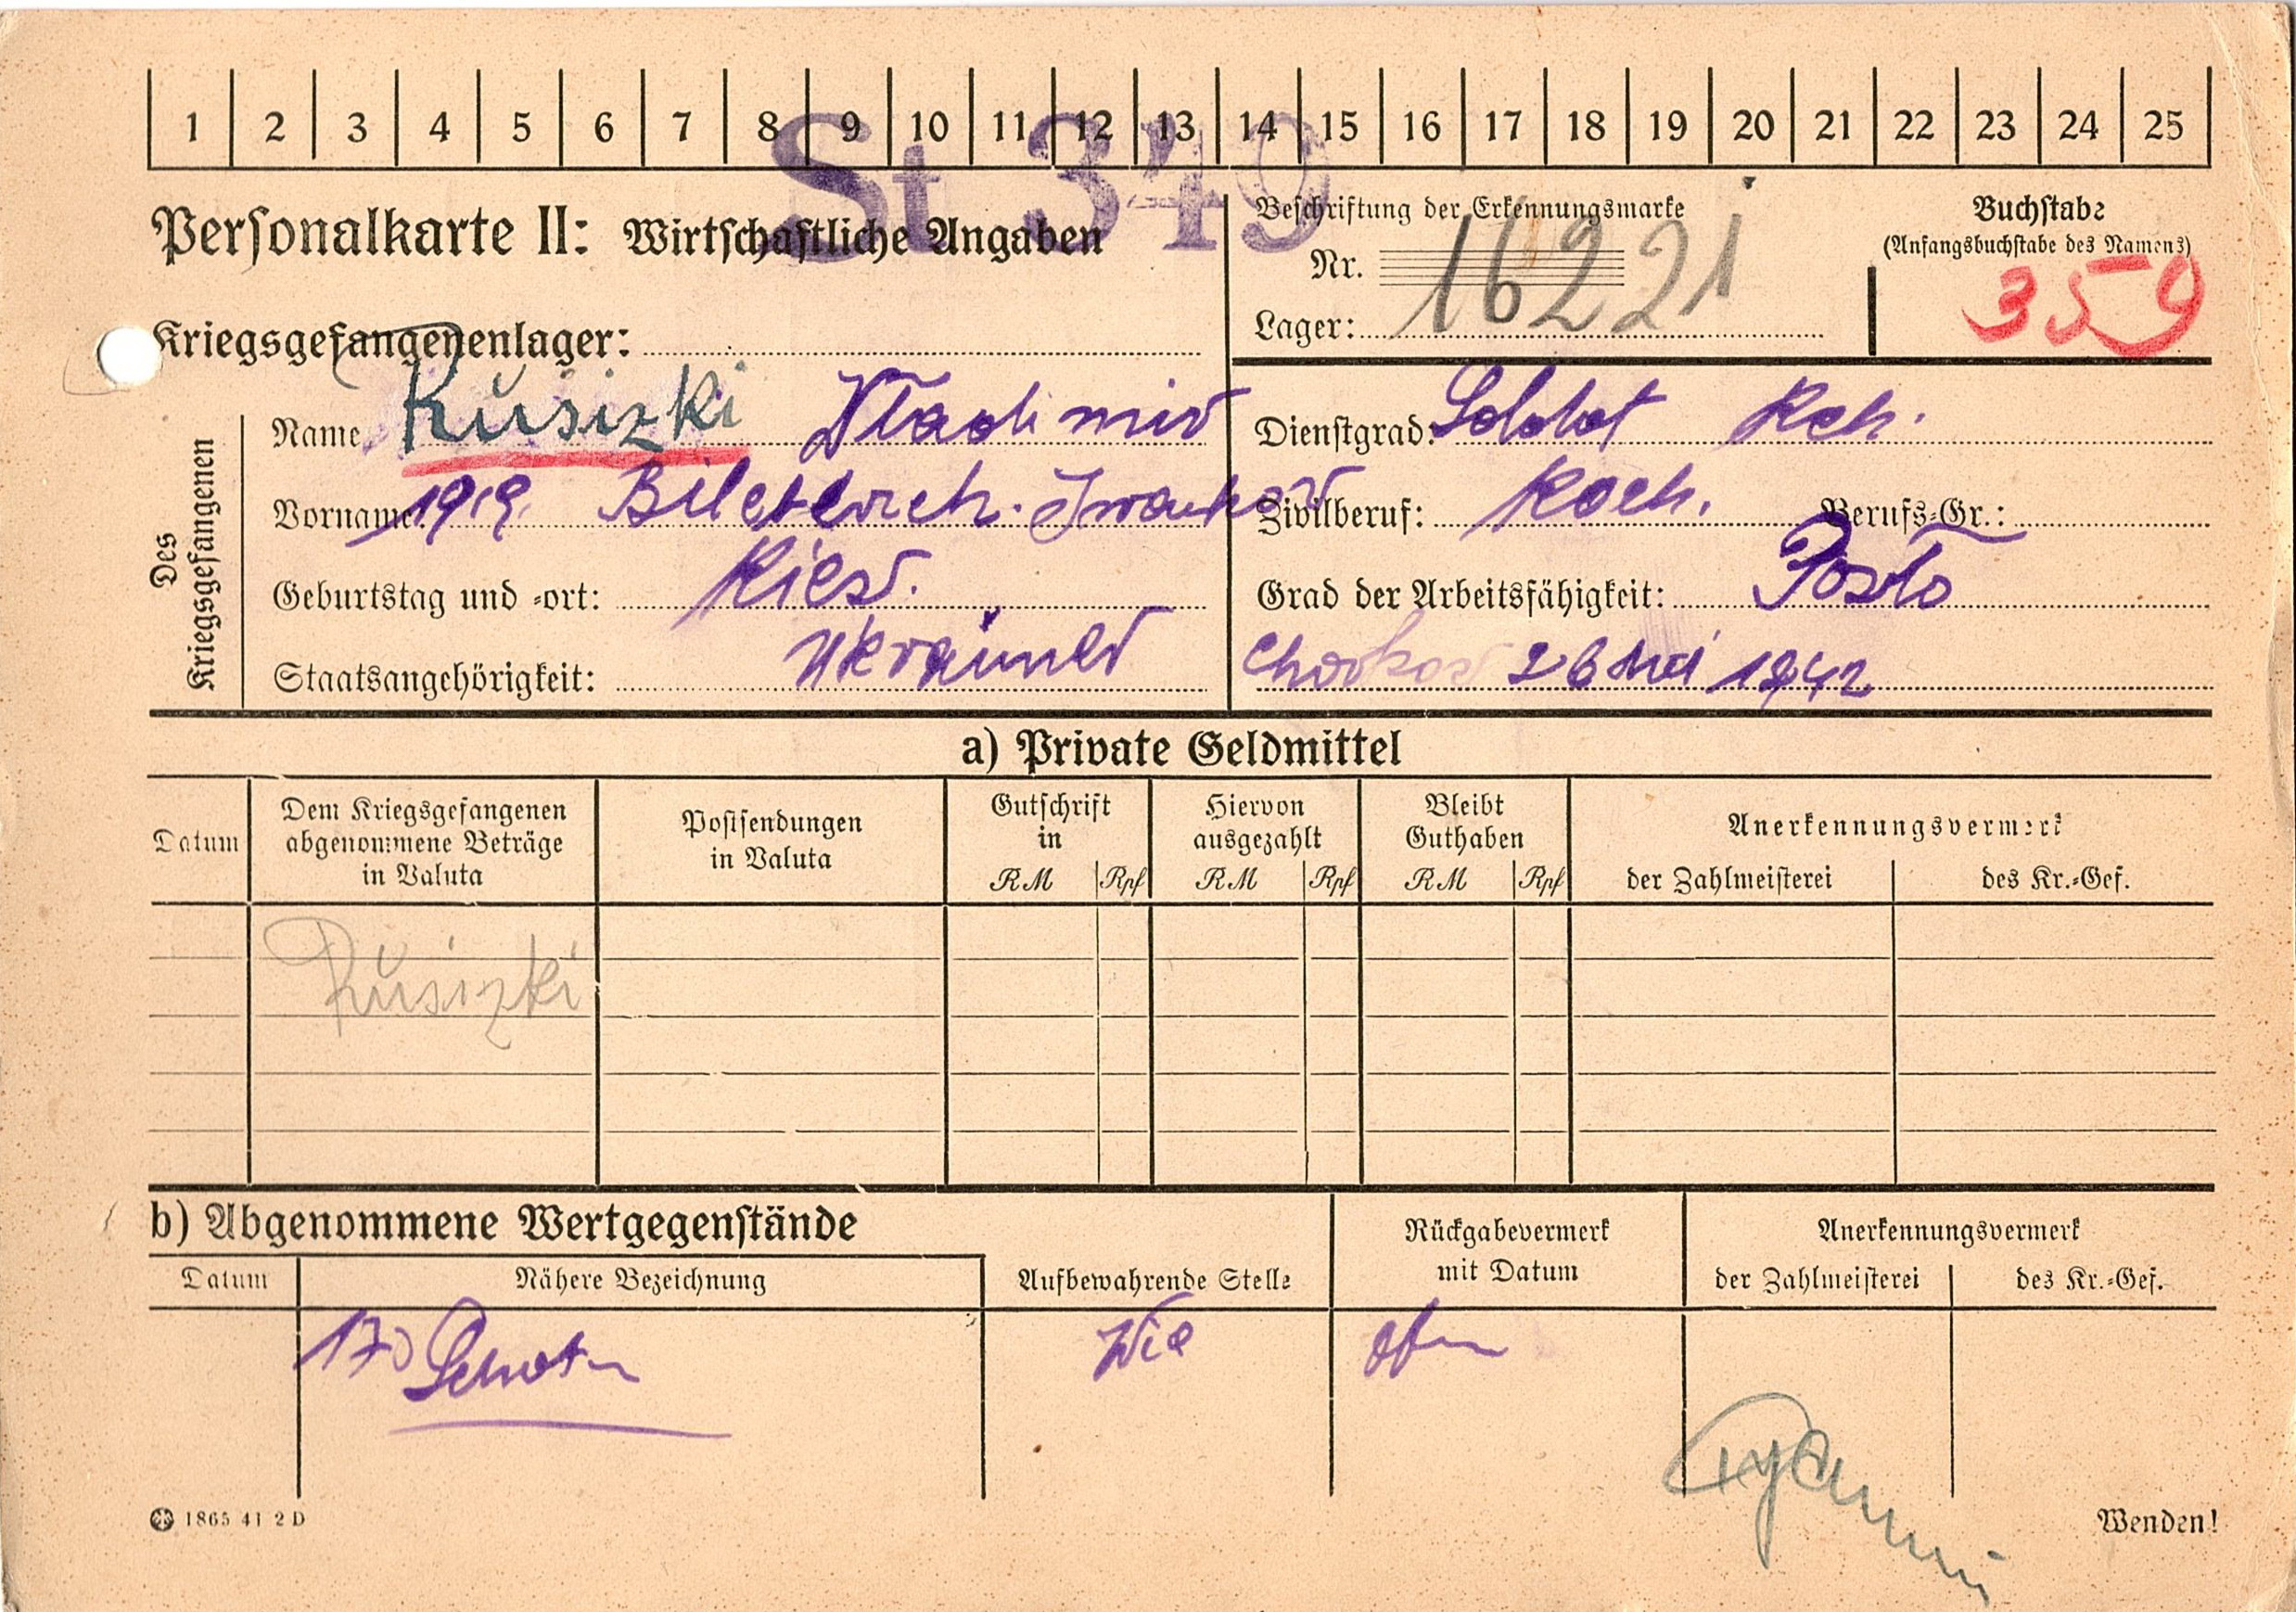 1 2 3 4 5 6 7 8 9 10 11 12 13 14 15 16 17 18 19 20 21 22 23 24 25
St 349
Personalkarte II: Wirtschaftliche Angaben
Beschriftung der Erkennungsmarke
Nr. 16221
Lager:
Buchstabe
(Anfangsbuchstabe des Namens)
359
Kriegsgefangenenlager:
Des Kriegsgefangenen
Name Rŭsizki Vladimir
Vorname: 1919.
Geburtstag und -ort: Kiew.
Staatsangehörigkeit: Ukrainer
Dienstgrad: Soldat
Zivilberuf: Koch. Berufs-Gr.:
Grad der Arbeitsfähigkeit:
Charkow 26 Mai 1942
a) Private Geldmittel
Datum
Dem Kriegsgefangenen abgenommene Beträge in Valuta
Postsendungen in Valuta
Gutschrift in RM Rpf
Hiervon ausgezahlt RM Rpf
Bleibt Guthaben RM Rpf
Anerkennungsvermerk
der Zahlmeisterei des Kr.-Gef.
Rŭsizki
b) Abgenommene Wertgegenstände
Datum Nähere Bezeichnung
Aufbewahrende Stelle
Rückgabevermerk mit Datum
Anerkennungsvermerk
der Zahlmeisterei des Kr.-Gef.
Wie oben
1865 41 2 D
Wenden!